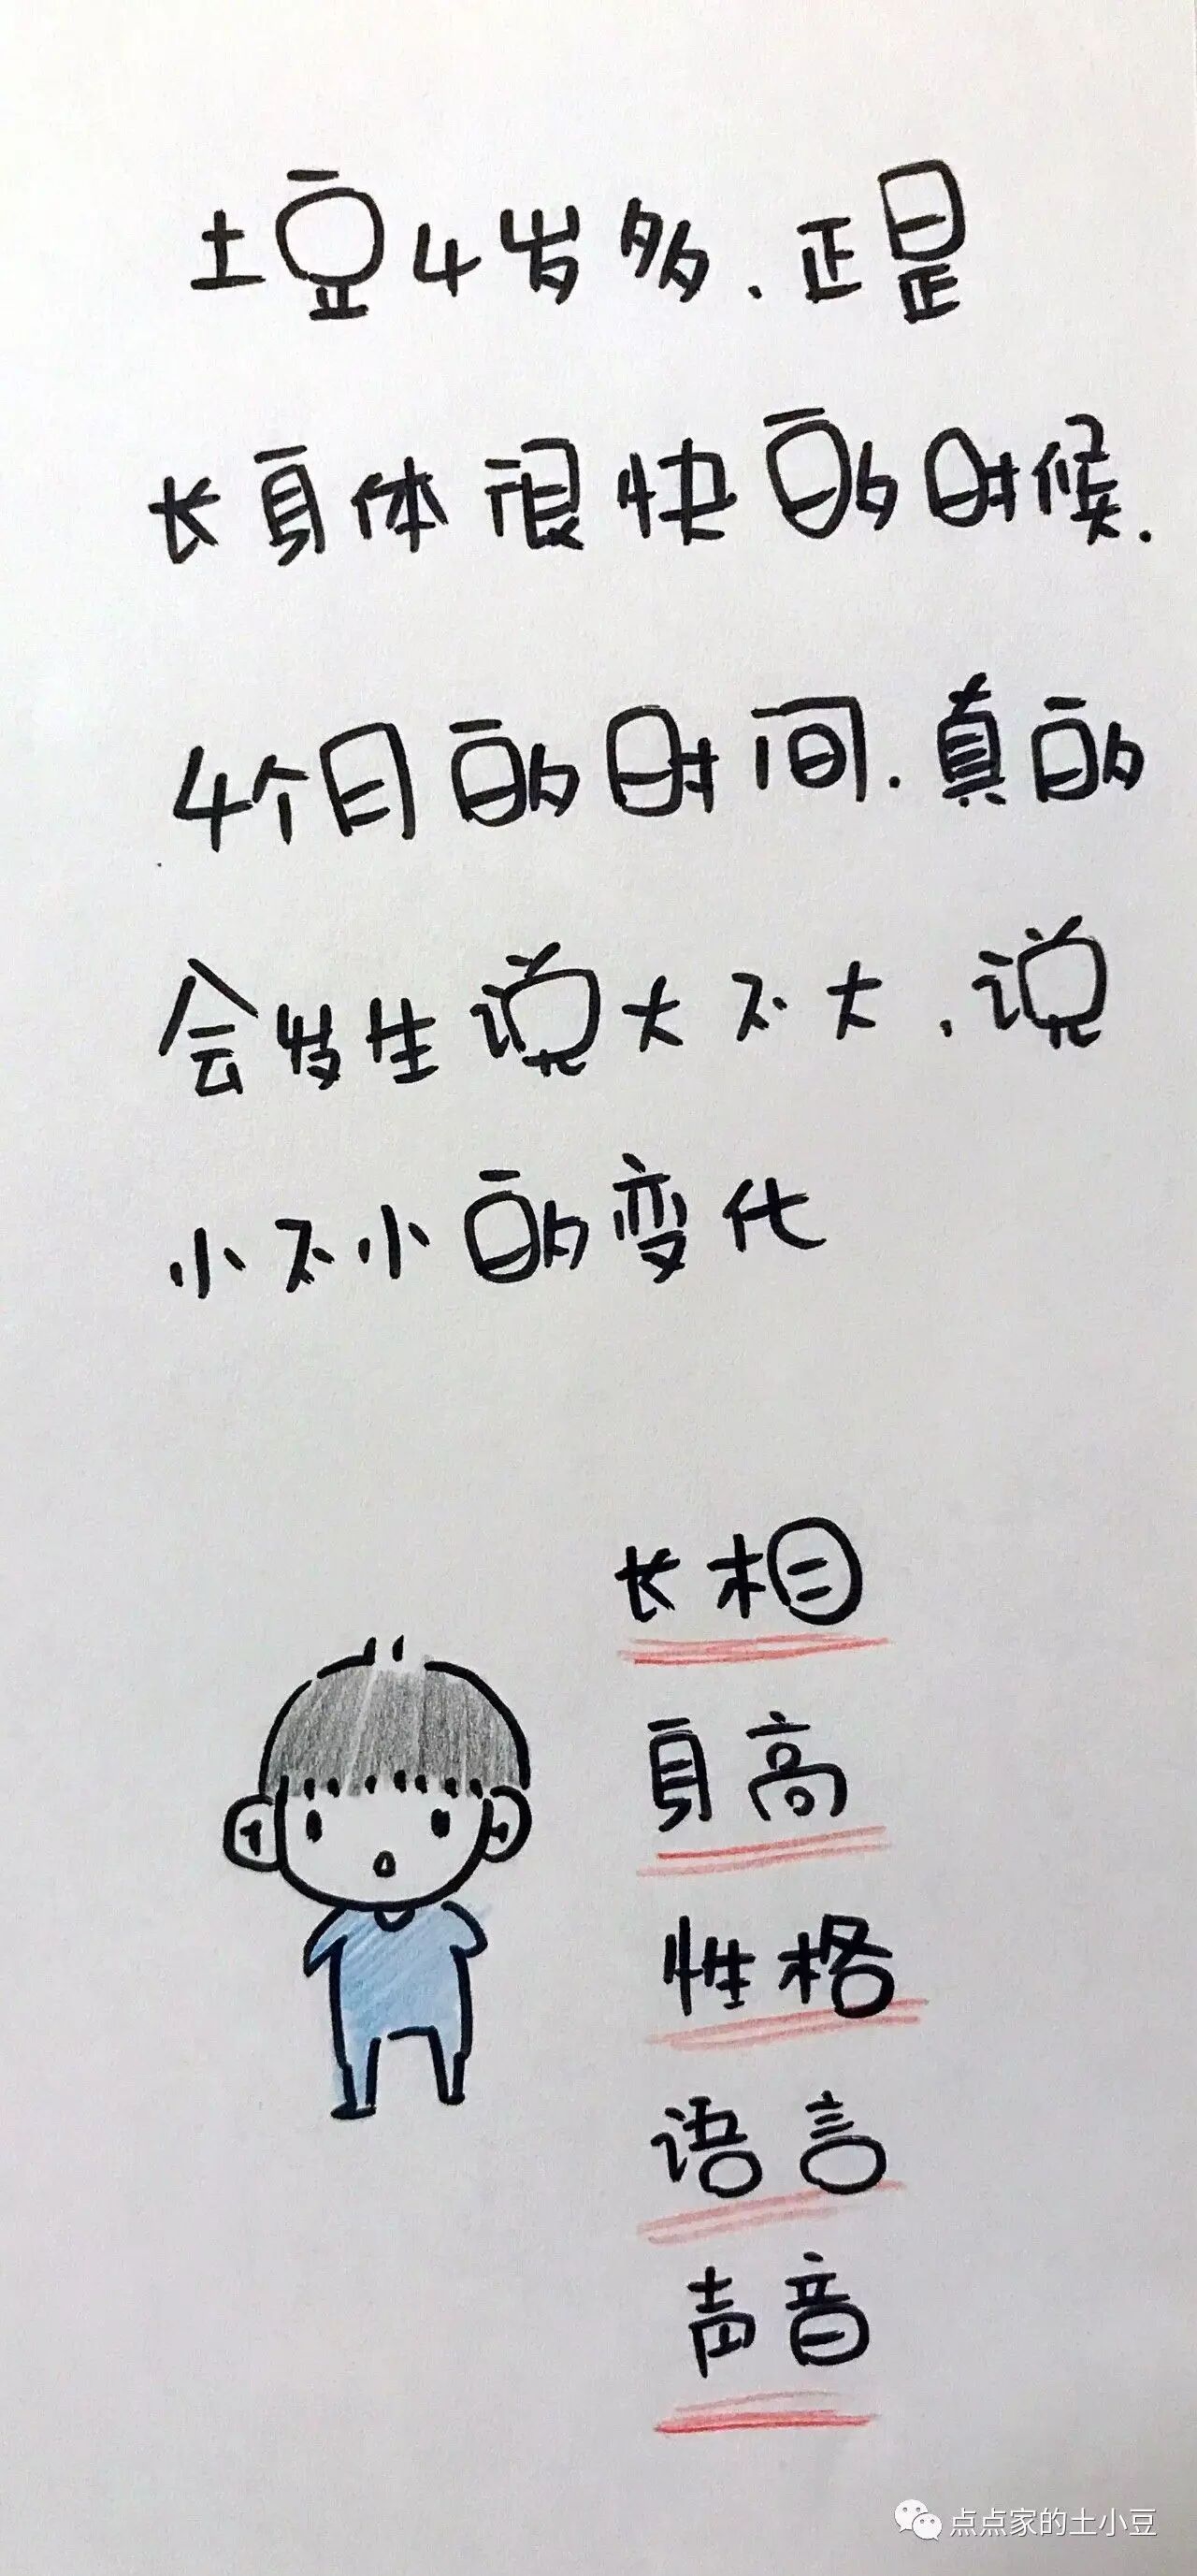 土豆4岁多.正是
长身体很快的时候.
4个月的时间.真的
会发生说大不大.说
小不小的变化
长相
身高
性格
语言
声音
点点家的土小豆